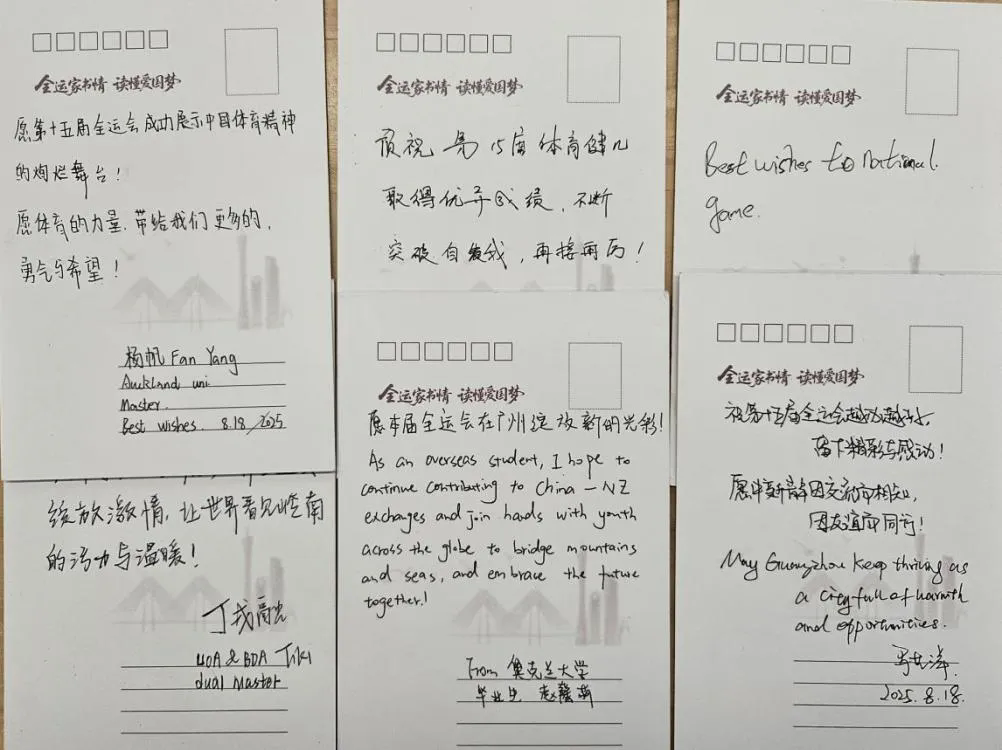 全运家书情 读懂爱国梦
愿第十五届全运会成功展示中国体育精神
的绚烂舞台!
愿体育的力量,带给我们更多的,
勇气与希望!
杨帆 Fan Yang
Auckland uni
Master.
Best wishes. 8.18/2025
全运家书情 读懂爱国梦
预祝 第15届体育健儿
取得优异成绩,不断
突破自我,再接再厉!
全运家书情 读懂爱国梦
Best wishes to National
game.
绽放激情,让世界看见岭南
的活力与温暖!
UOA & BDA Tiki
dual Master
全运家书情 读懂爱国梦
愿本届全运会在广州绽放新的光彩!
As an overseas student, I hope to
continue contributing to China - NZ
exchanges and join hands with youth
across the globe to bridge mountains
and seas, and embrace the future
together!
From 奥克兰大学
毕业生 赵
全运家书情 读懂爱国梦
祝第十五届全运会越办越好,
留下精彩与感动!
愿中新青年因交流而相知,
因友谊而同行!
May Guangzhou keep thriving as
a city full of warmth
and opportunities.
2025.8.18.